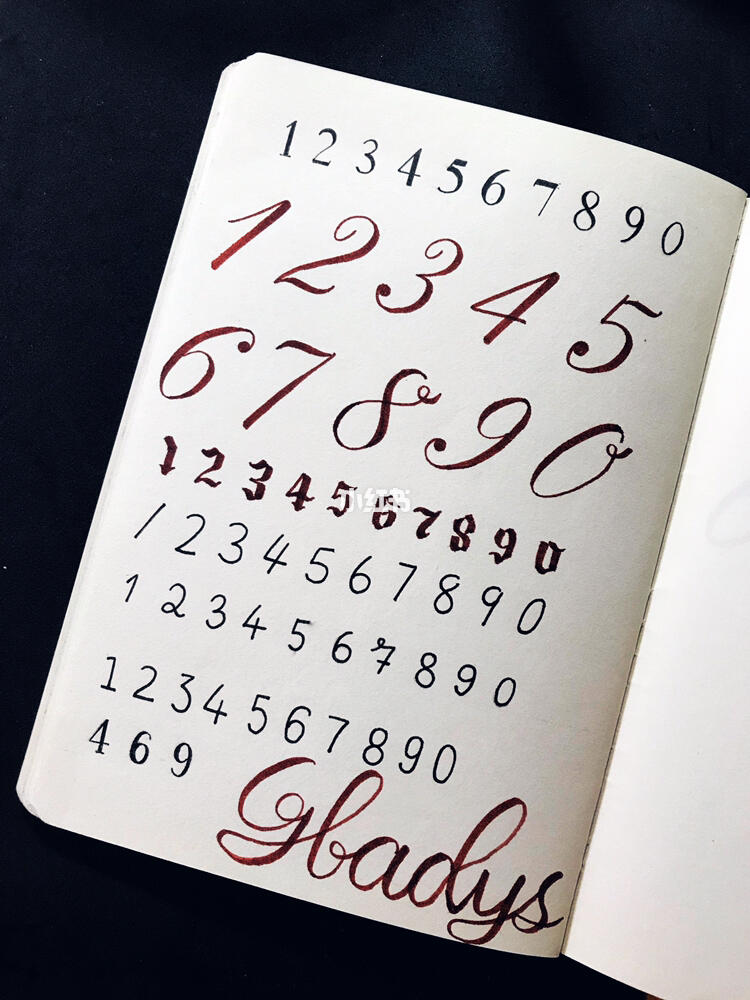 1234567890
12345
67890
1234567890
小红书
1234567890
1234567890
1234567890
469
Gladys